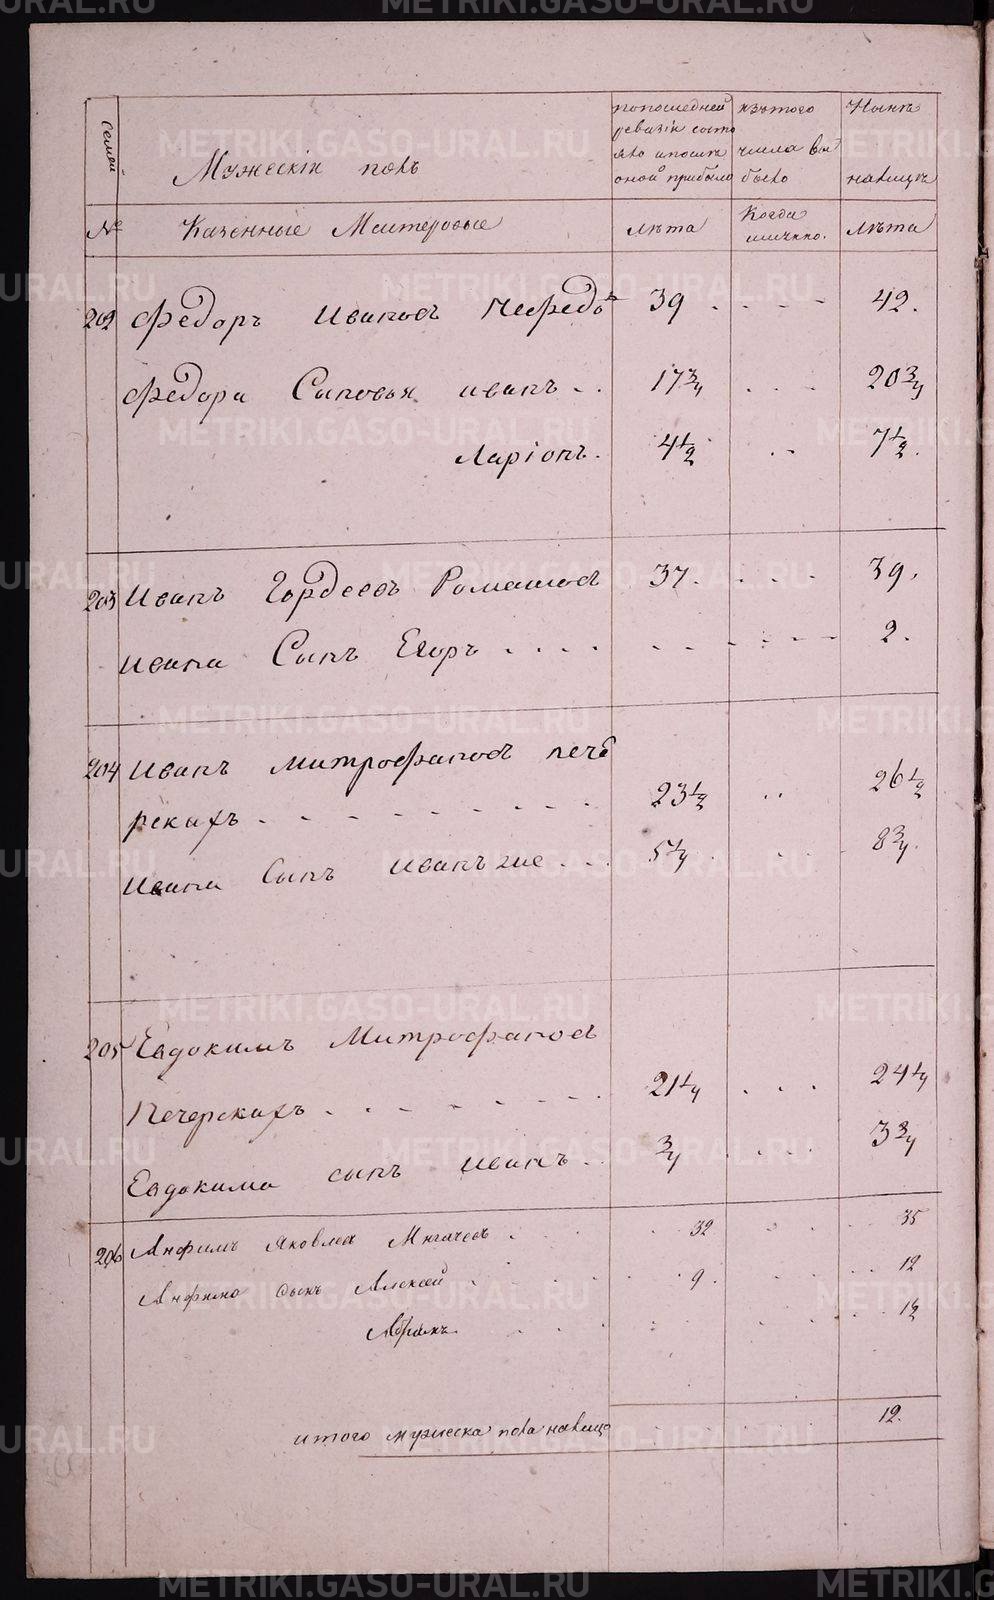 METRIKI.GASO-URAL.RU
семей
Мужескiй полъ
попоследней
ревизiи состо
яло ипослѣ
оной прибыло
изътого
числа вы
было
Нынѣ
налицѣ
№
Казенные Мастеровые
лѣта
Когда
имянно.
лѣта
202 Федоръ Ивановъ 39 42.
Федора Сыновья иванъ 17¾ 20¾
Ларiонъ. 4½ 7½.
203 Иванъ Гордеевъ Ромашов 37. 39.
ивана Сынъ Егоръ 2.
204 Иванъ митрофановъ пече
рскихъ 23½ 26½
Ивана Сынъ Иванъ же 5¼ 8¾.
205 Евдокимъ Митрофановъ
Печерскихъ 21¼ 24¼
Евдокима сынъ иванъ ¾ 3¾
206 Анфимъ Яковлев 32 35
Анфима сынъ Алексей 9. 12
Абрамъ 1½
итого мужеска пола налицо 12.